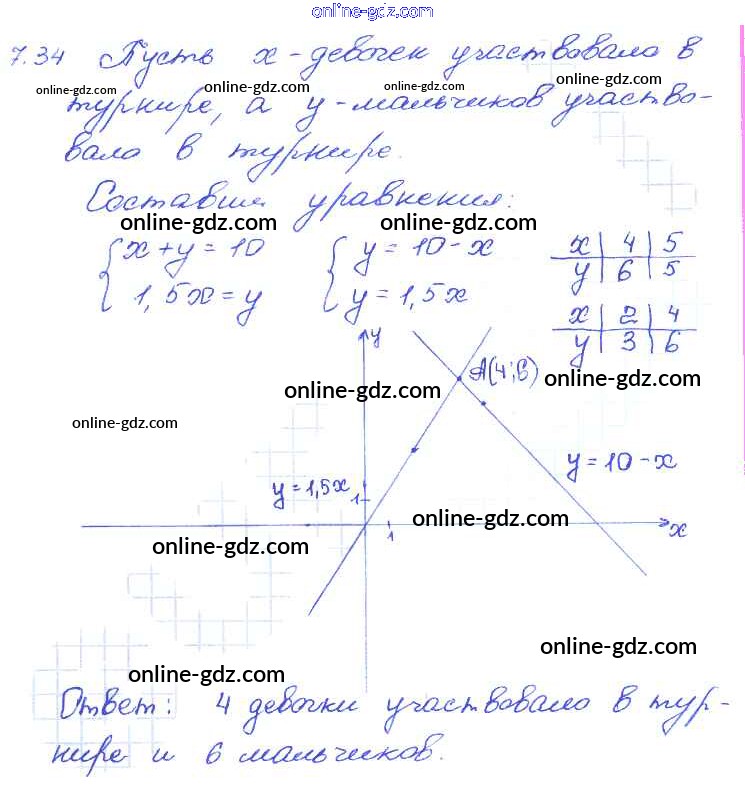 online-gdz.com
7.34 Пусть x - девочек участвовало в
online-gdz.com online-gdz.com online-gdz.com
турнире, а y - мальчиков участво-
вало в турнире.
Составим уравнения:
online-gdz.com online-gdz.com
{ x + y = 10 { y = 10 - x x | 4 | 5
1,5x = y y = 1,5x y | 6 | 5
x | 2 | 4
y | 3 | 6
y
A(4;6) online-gdz.com
online-gdz.com
online-gdz.com
y = 10 - x
y = 1,5x 1
online-gdz.com
1 x
online-gdz.com
online-gdz.com
online-gdz.com
Ответ: 4 девочки участвовало в тур-
нире и 6 мальчиков.